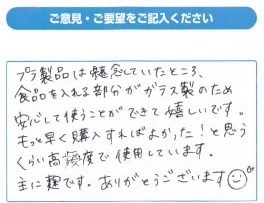 ご意見・ご要望をご記入ください
プラ製品は懸念していたところ、
食品を入れる部分がガラス製のため
安心して使うことができて嬉しいです。
もっと早く購入すればよかった!と思う
くらい高頻度で使用しています。
主に麹です。ありがとうございます